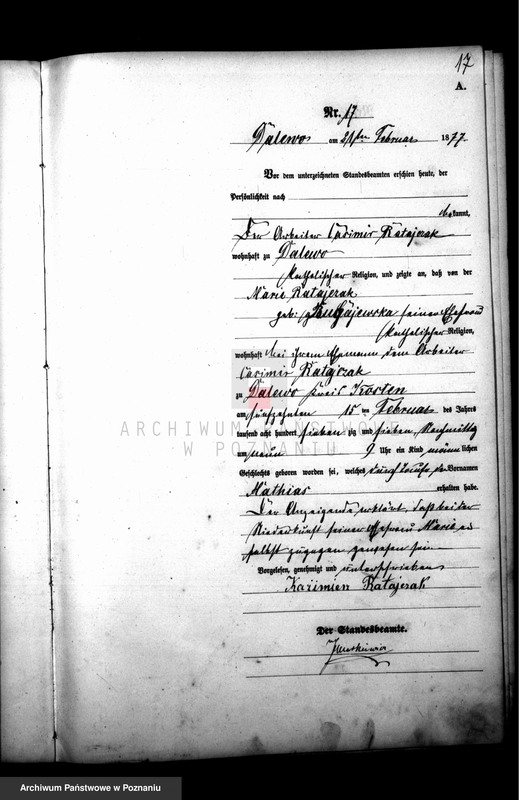 17
A.
Nr. 17.
Dalewo am 21ten Februar 1877.
Vor dem unterzeichneten Standesbeamten erschien heute, der
Persönlichkeit nach
bekannt,
Der Arbeiter Casimir Ratajczak
wohnhaft zu Dalewo
katholischer Religion, und zeigte an, daß von der
Marie Ratajczak
geb. seiner Ehefrau
katholischer Religion,
wohnhaft bei ihrem Ehemann dem Arbeiter
Casimir Ratajczak
zu Dalewo Kreis Kosten
am fünfzehnten 15 ten Februar des Jahres
tausend acht hundert sieben zig und sieben, Nachmittag
um neun 9 Uhr ein Kind männlichen
Geschlechts geboren worden sei, welches den Vornamen
Mathias erhalten habe.
Der Anzeigende erklärt, daß bei der
Niederkunft seiner Ehefrau Marie er
selbst zugegen gewesen sein
Vorgelesen, genehmigt und unterschrieben
Kazimien Ratajczak
Der Standesbeamte.
ARCHIWUM PAŃSTWOWE
W POZNANIU
Archiwum Państwowe w Poznaniu